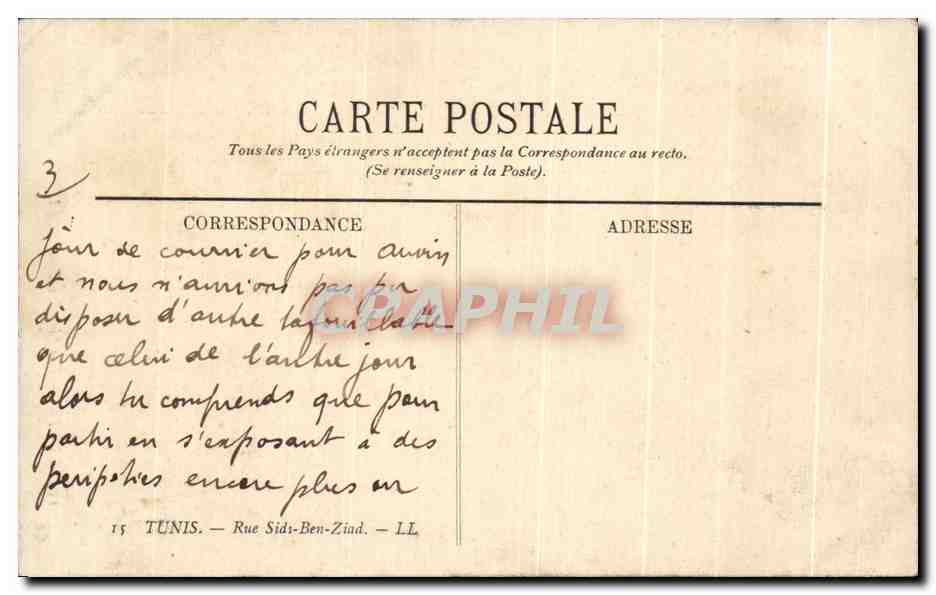 CARTE POSTALE
Tous les Pays étrangers n'acceptent pas la Correspondance au recto.
(Se renseigner à la Poste).
3
CORRESPONDANCE
ADRESSE
jour de courrier pour
et nous n'aurions pas pu
disposer d'autre
que celui de l'autre jour
alors tu comprends que pour
partir en s'exposant à des
peripeties encore plus ou
CPAPHIL
15 TUNIS. — Rue Sidi-Ben-Ziad. — LL